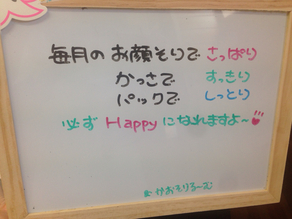 毎月の お顔そりで さっぱり
かっさで すっきり
パックで しっとり
必ず Happy になれますよ~
かおそりるーむ